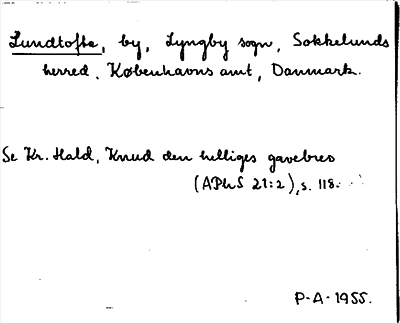 Lundtofte, by, Lyngby sogn, Sokkelunds
herred, Københavns amt, Danmark.
Se Kr. Hald, Knud den helliges gavebrev
(APhS 21:2), s. 118.
P-A-1955.